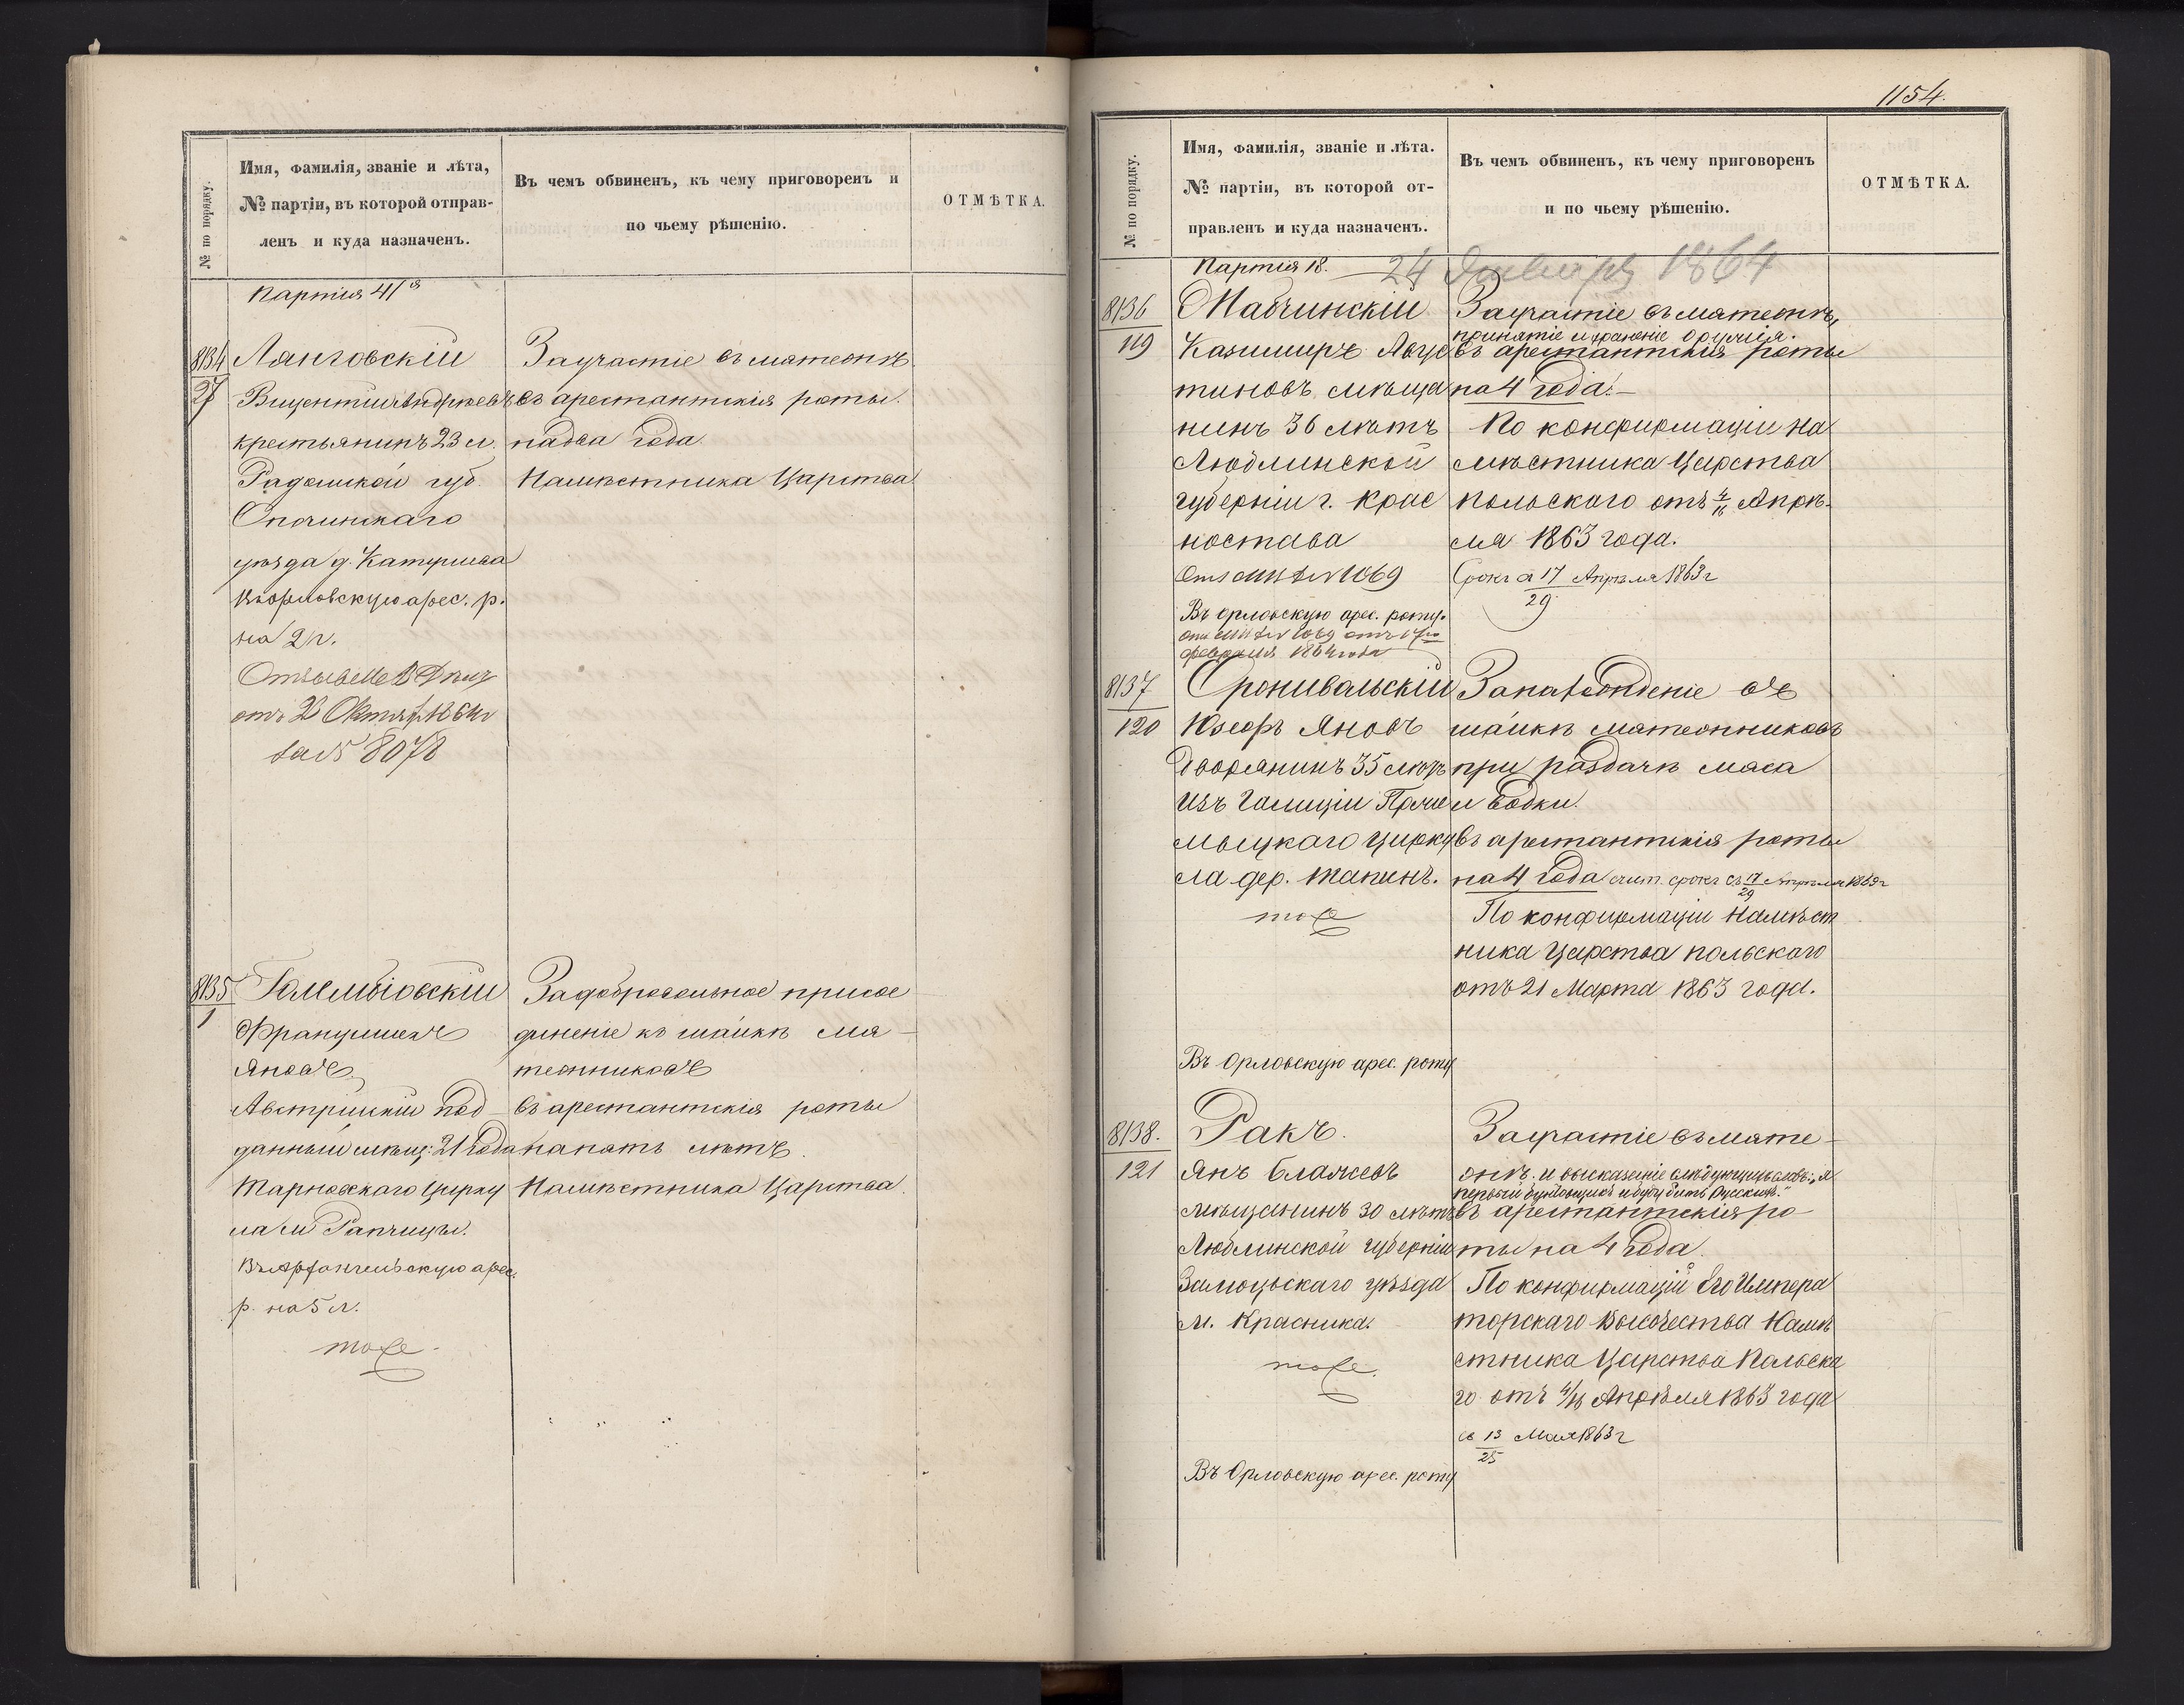 № по порядку.
Имя, фамилія, званіе и лѣта,
№ партіи, въ которой отправ-
ленъ и куда назначенъ.
Въ чемъ обвиненъ, къ чему приговоренъ и
по чьему рѣшенію.
ОТМѢТКА.
Партія 41я
8134
27
Лянговскій
крестьянинъ 23 л.
Радомской губ.
Опочинскаго
уѣзда д.
Въ Орловскую арес. р.
на 2 г.
отъ 28 Октяб. 1864
за № 8078
За участіе въ мятежѣ
въ арестантскія роты
на два года
Намѣстника Царства
8135
1
Францишекъ
Яновъ
Австрійскій под
данный мѣщ: 21 года
Тарновскаго цирку
ла м
Въ Архангельскую арес.
р. на 5 л.
тоже
За добровольное присое
диненіе къ шайкѣ мя-
тежниковъ
въ арестантскія роты
на пять лѣтъ.
Намѣстника Царства.
1154.
№ по порядку.
Имя, фамилія, званіе и лѣта.
№ партіи, въ которой от-
правленъ и куда назначенъ.
Въ чемъ обвиненъ, къ чему приговоренъ
и по чьему рѣшенію.
ОТМѢТКА.
Партія 18. 24 Января 1864
8136
119
Казимиръ Авгус
тиновъ мѣща
нинъ 36 лѣтъ
Люблинской
губерніи г. Крас
ностава
Въ Орловскую арес. роту.
февраля 1864 года
За участіе въ мятежѣ,
принятіе и храненіе оружія.
въ арестантскія роты
на 4 года.—
По конфирмаціи На
мѣстника Царства
Польскаго отъ 4/16 Апрѣ-
ля 1863 года.
Срокъ с 17/29 Апрѣля 1863 г
8137
120
Юзефъ Яновъ
Дворянинъ 35 лѣтъ
изъ Галиціи
мысцкаго цирку
ла дер.
тоже
Въ Орловскую арес. роту
За нахожденіе въ
шайкѣ мятежниковъ
при раздачѣ мяса
и водки.
въ арестантскія роты
на 4 года счит. срокъ съ 17/29 Апрѣля 1863 г
По конфирмаціи Намѣст
ника Царства Польскаго
отъ 21 Марта 1863 года.
8138.
121
Ракъ.
Янъ Блажеевъ
мѣщанинъ 30 лѣтъ
Люблинской губерніи
Замоцьскаго уѣзда
м. Красника.
тоже.
Въ Орловскую арес. роту
За участіе въ мяте-
жѣ и высказаніе слѣдующихъ словъ: „я
первый бунтовщикъ и буду бить Русскихъ."
въ арестантскія ро-
ты на 4 года.
По конфирмаціи Его Импера
торскаго Высочества Намѣ
стника Царства Польска
го отъ 4/16 Апрѣля 1863 года
съ 13/25 Мая 1863 г